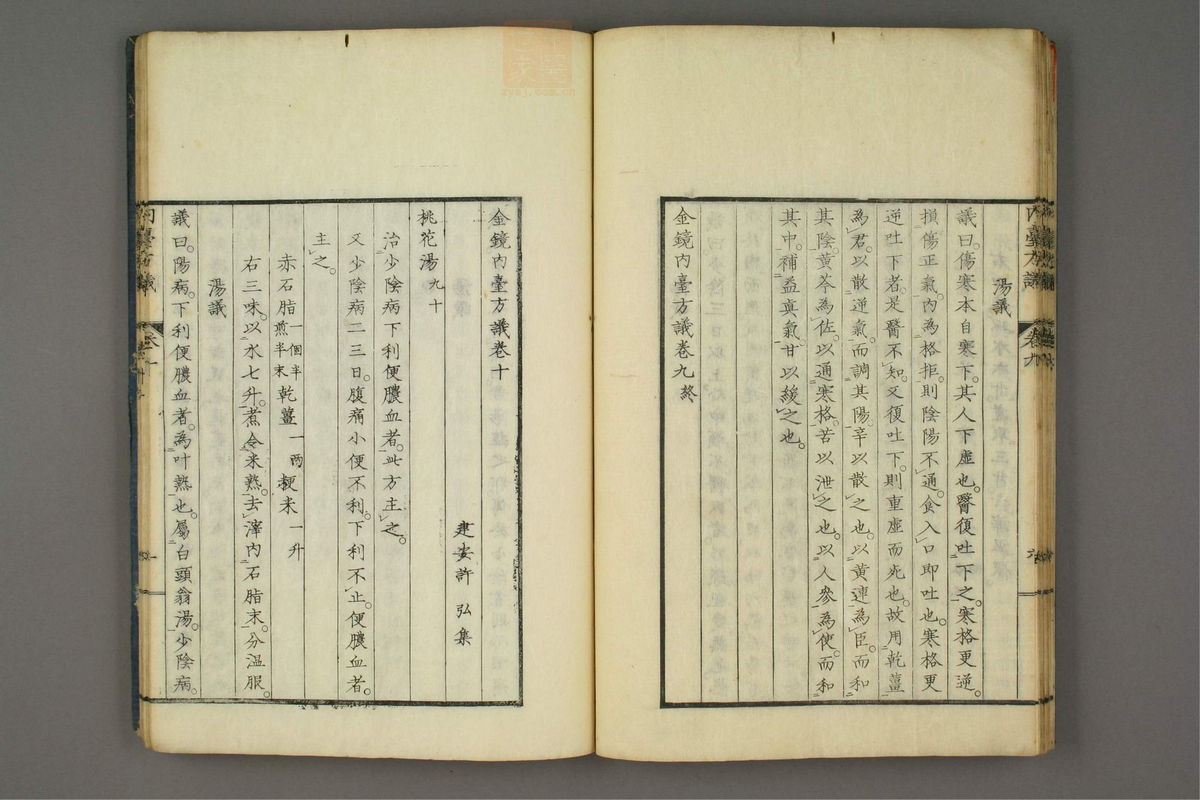 湯議
議曰。傷寒本自寒下。其人下虛也。醫復吐下之。寒格更逆。
損傷正氣。內為格拒。則陰陽不通。食入口即吐也。寒格更
逆吐下者。是醫不知。又復吐下。則重虛而死也。故用乾薑
為君。以散逆氣。而調其陽。辛以散之也。以黃連為臣。而和
其陰。黃芩為佐。以通寒格。苦以泄之也。以人參為使。而和
其中。補益真氣。甘以緩之也。
金鏡內臺方議卷九終
金鏡內臺方議卷十
建安許 弘集
桃花湯九十
治少陰病下利便膿血者。此方主之。
又少陰病二三日。腹痛小便不利。下利不止。便膿血者。
主之。
赤石脂一個半煎半末 乾薑一兩 粳米一升
右三味。以水七升。煮令米熟。去滓內石脂末。分溫服。
湯議
議曰。陽病。下利便膿血者。為叶熱也。屬白頭翁湯。少陰病。